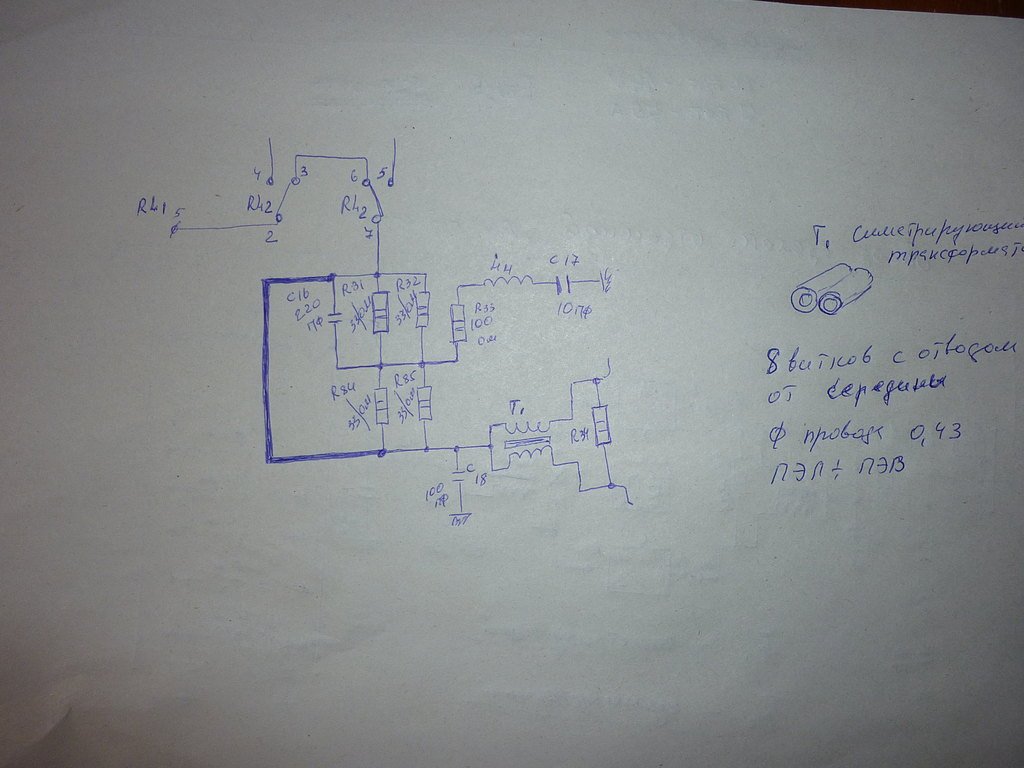 4
3
6
5
RL1 5
RL2
RL2
2
7
C16
220
пф
R31
33 ом
R32
33 ом
R33
100
ом
L14
C17
10 пф
R84
33 ом
R85
33 ом
T1
R34
C
18
100
пф
T1 симетрирующий
трансформат
8 витков с отводом
от середины
ф провода 0,43
ПЭЛ ÷ ПЭВ